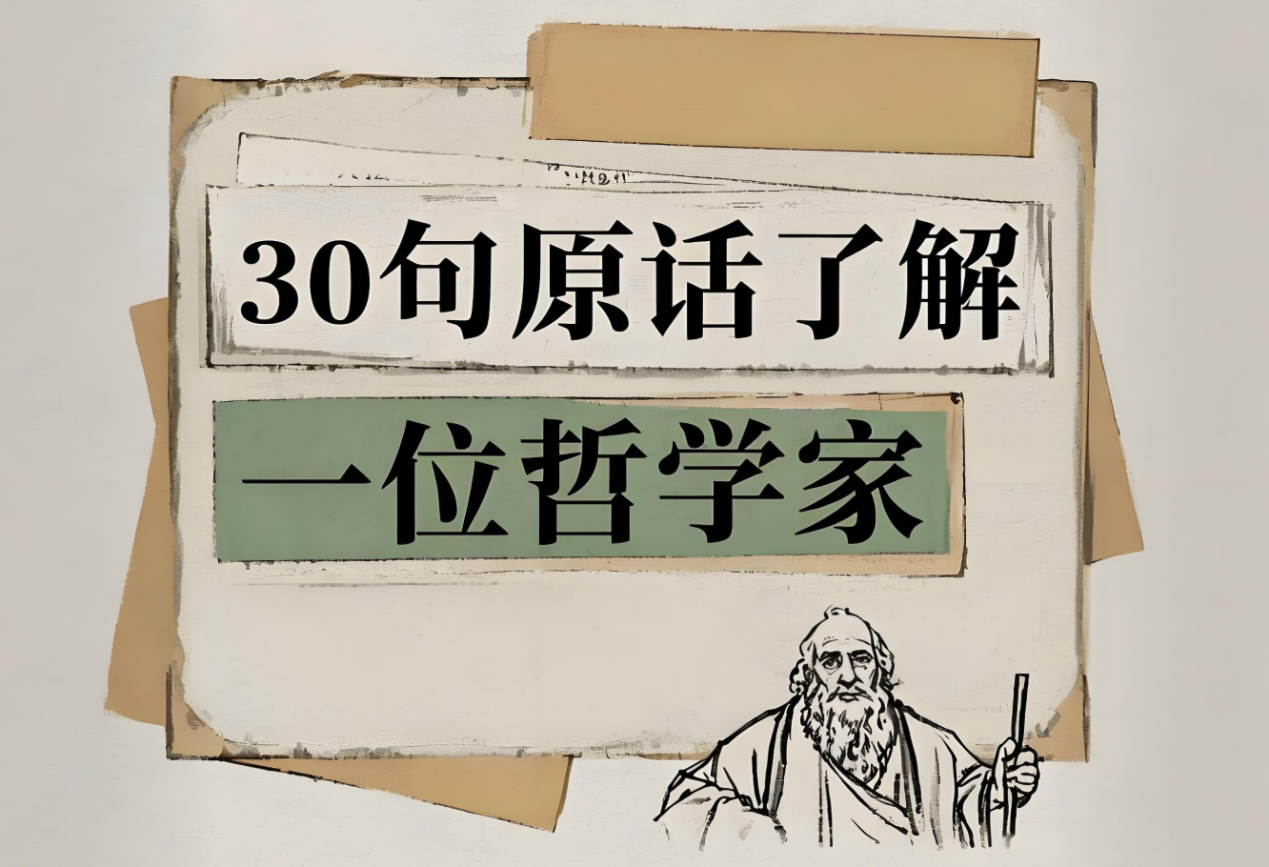 30句原话了解
一位哲学家